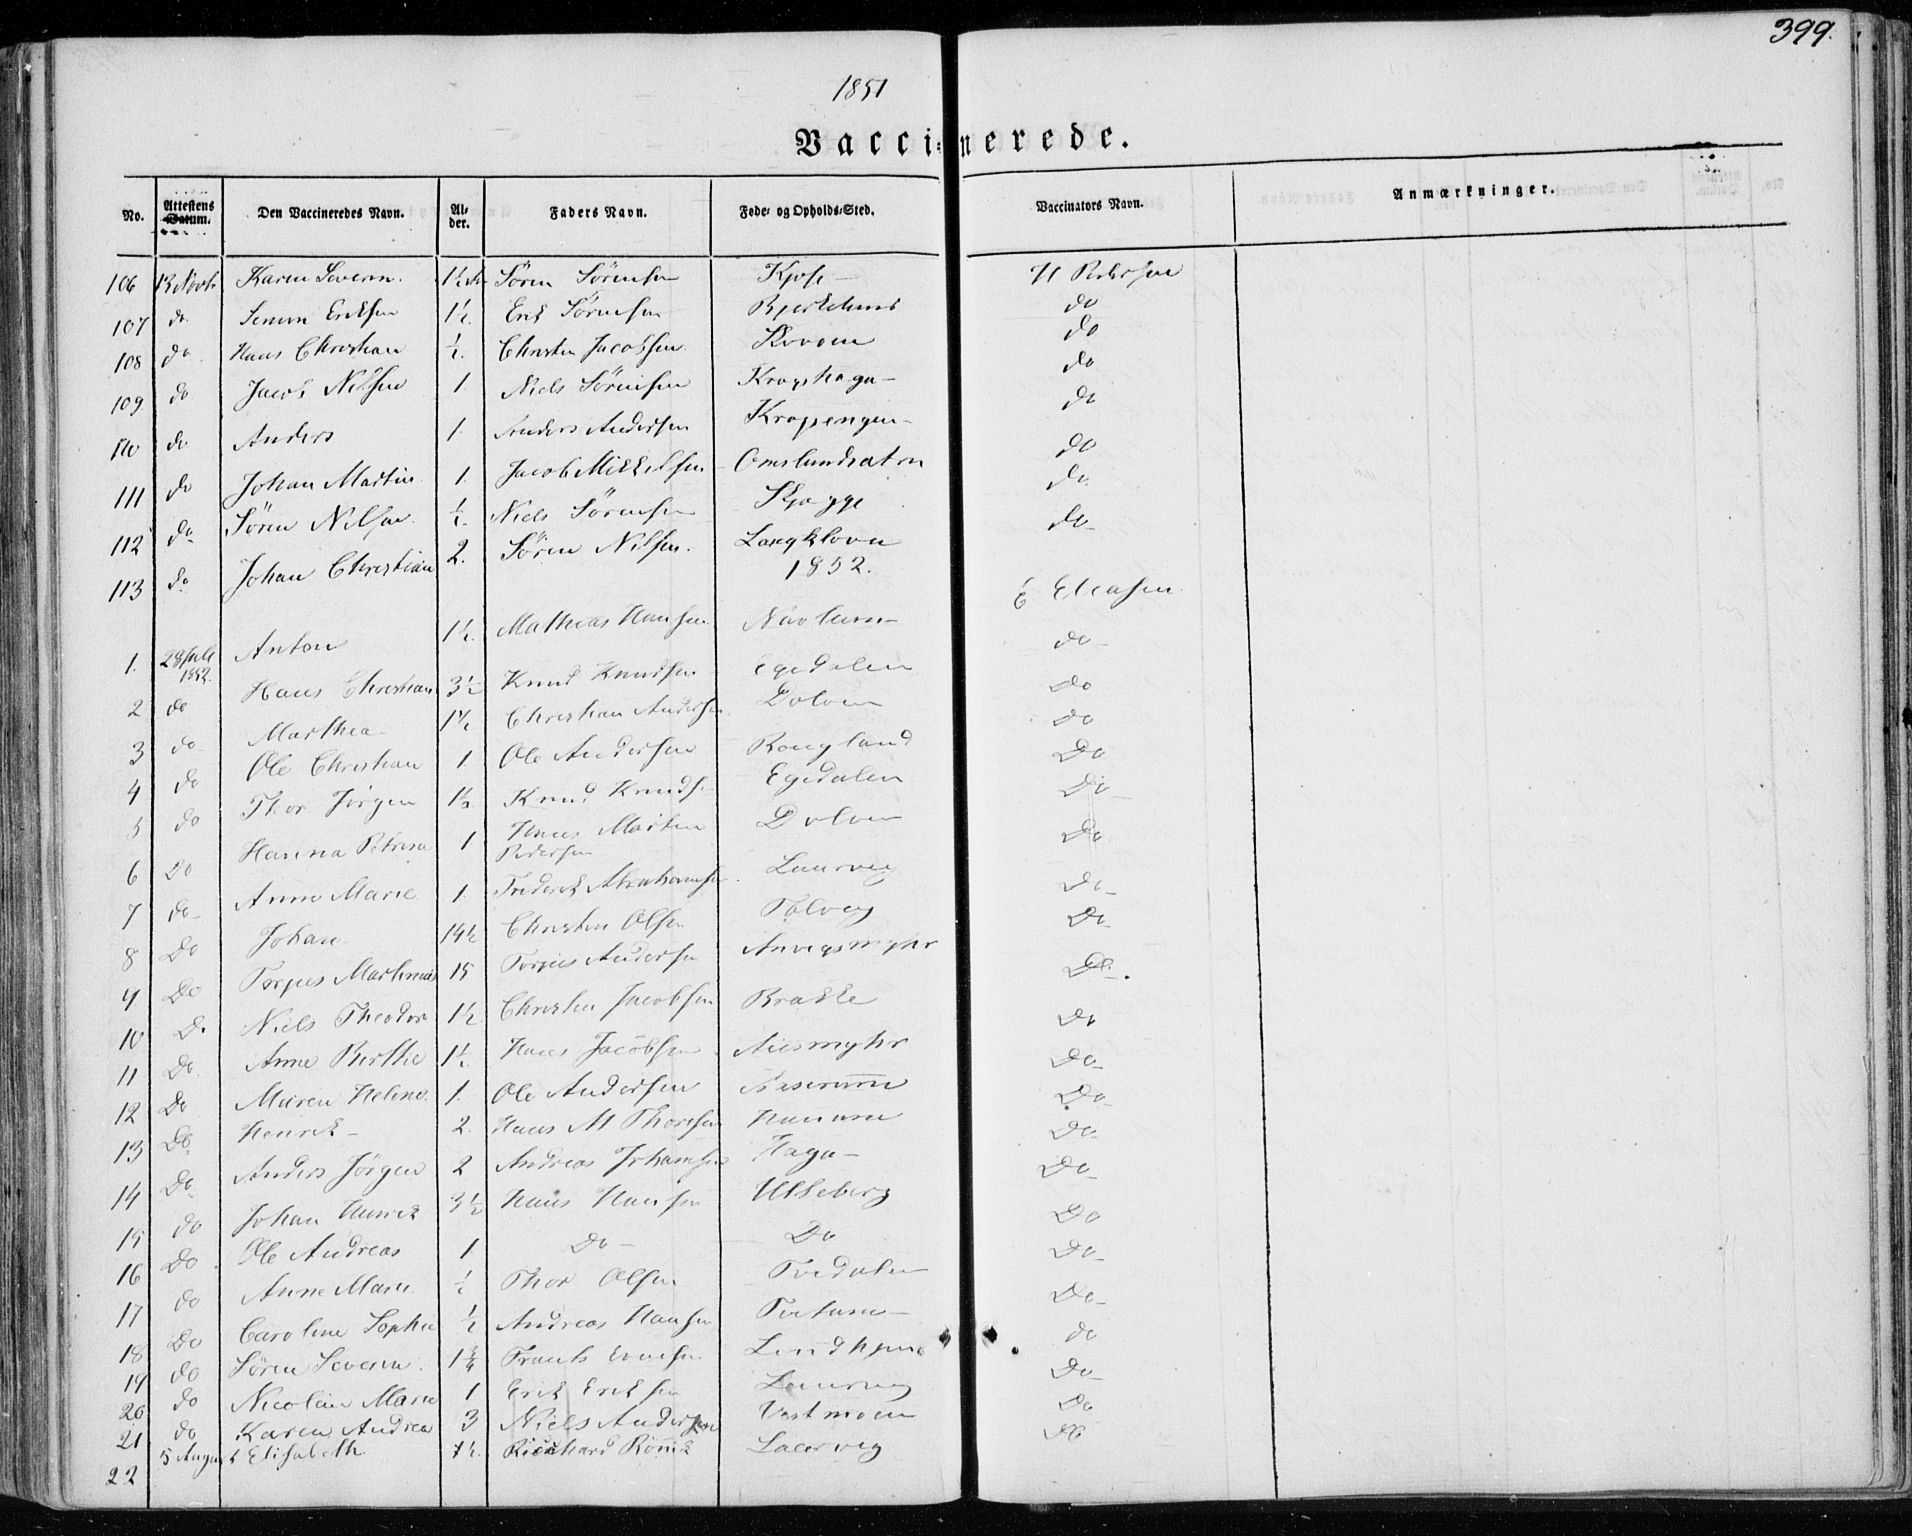 399.
1851
Vaccinerede.
No. Attestens Datum. Den Vaccineredes Navn. Alder. Faders Navn. Føde- og Opholds-Sted. Vaccinators Navn. Anmærkninger.
106 13 Novb Karen Severin. 1½ Sören Sörensen Kjose H Pedersen
107 do Simon Eriksen 1½ Erik Sörensen do
108 do Hans Christian ½ Christen Jacobsen do
109 do Jacob Nilsen 1. Niels Sörensen Kragshaga do
110 do Anders 1. Anders Andersen Kropengen do
111 do Johan Martin 1. Jacob Mikkelsen Omslundsatrn do
112 do Sören Nilsen ½ Niels Sörensen Skjegge do
113 do Johan Christian 2. Sören Nilsen. Langkloven do
1852.
1. 28 Juli 1852. Anton 1½ Mathias Hansen E Eliasen
2 do Hans Christian 3½ Knud Knudsen Egedalen do
3 do Marthea 1½ Christian Andersen Dolven do
4 do Ole Christian 1. Ole Andersen Rougland do
5 do Thor Jörgen 1½ Knud Knuds Egedalen Do
6 Do Hanna Petrine 1 Hans Martin Pedersen Dolven Do
7 do Anne Marie 1. Frederik Abrahamsen Laurvig Do
8 Do Johan 14½ Christen Olsen Tolveg Do
9 Do Torjus Martinius 15 Torjus Andersen Anvigsmyhr Do
10 Do Niels Theodor 1½ Christen Jacobsen Brakke Do.
11 Do Anne Berthe 1½ Hans Jacobsen Aiesmyhr Do
12 Do Maren Helene 1. Ole Andersen Do
13 Do Henrik 2. Hans M Thoresen Hanum Do
14 Do Anders Jörgen 2 Andreas Johansen Haga Do
15 do Johan Henrik 3½ Hans Hansen Ulleberg Do
16 Do Ole Andreas 1 Do Do Do
17 do Anne Marie ½ Thor Olsen Tvedalen Do
18 Do Caroline Sophie ½ Andreas Hansen Do
19 do Sören Severin 1¾ Frants Evensen do
20 do Nicoline Marie 1 Erik Eriksen Laurvig Do
21 do Karen Andrea 3 Niels Andersen Vestmoen Do
22 5 August Elisabeth 1½ Richard Laurvig Do